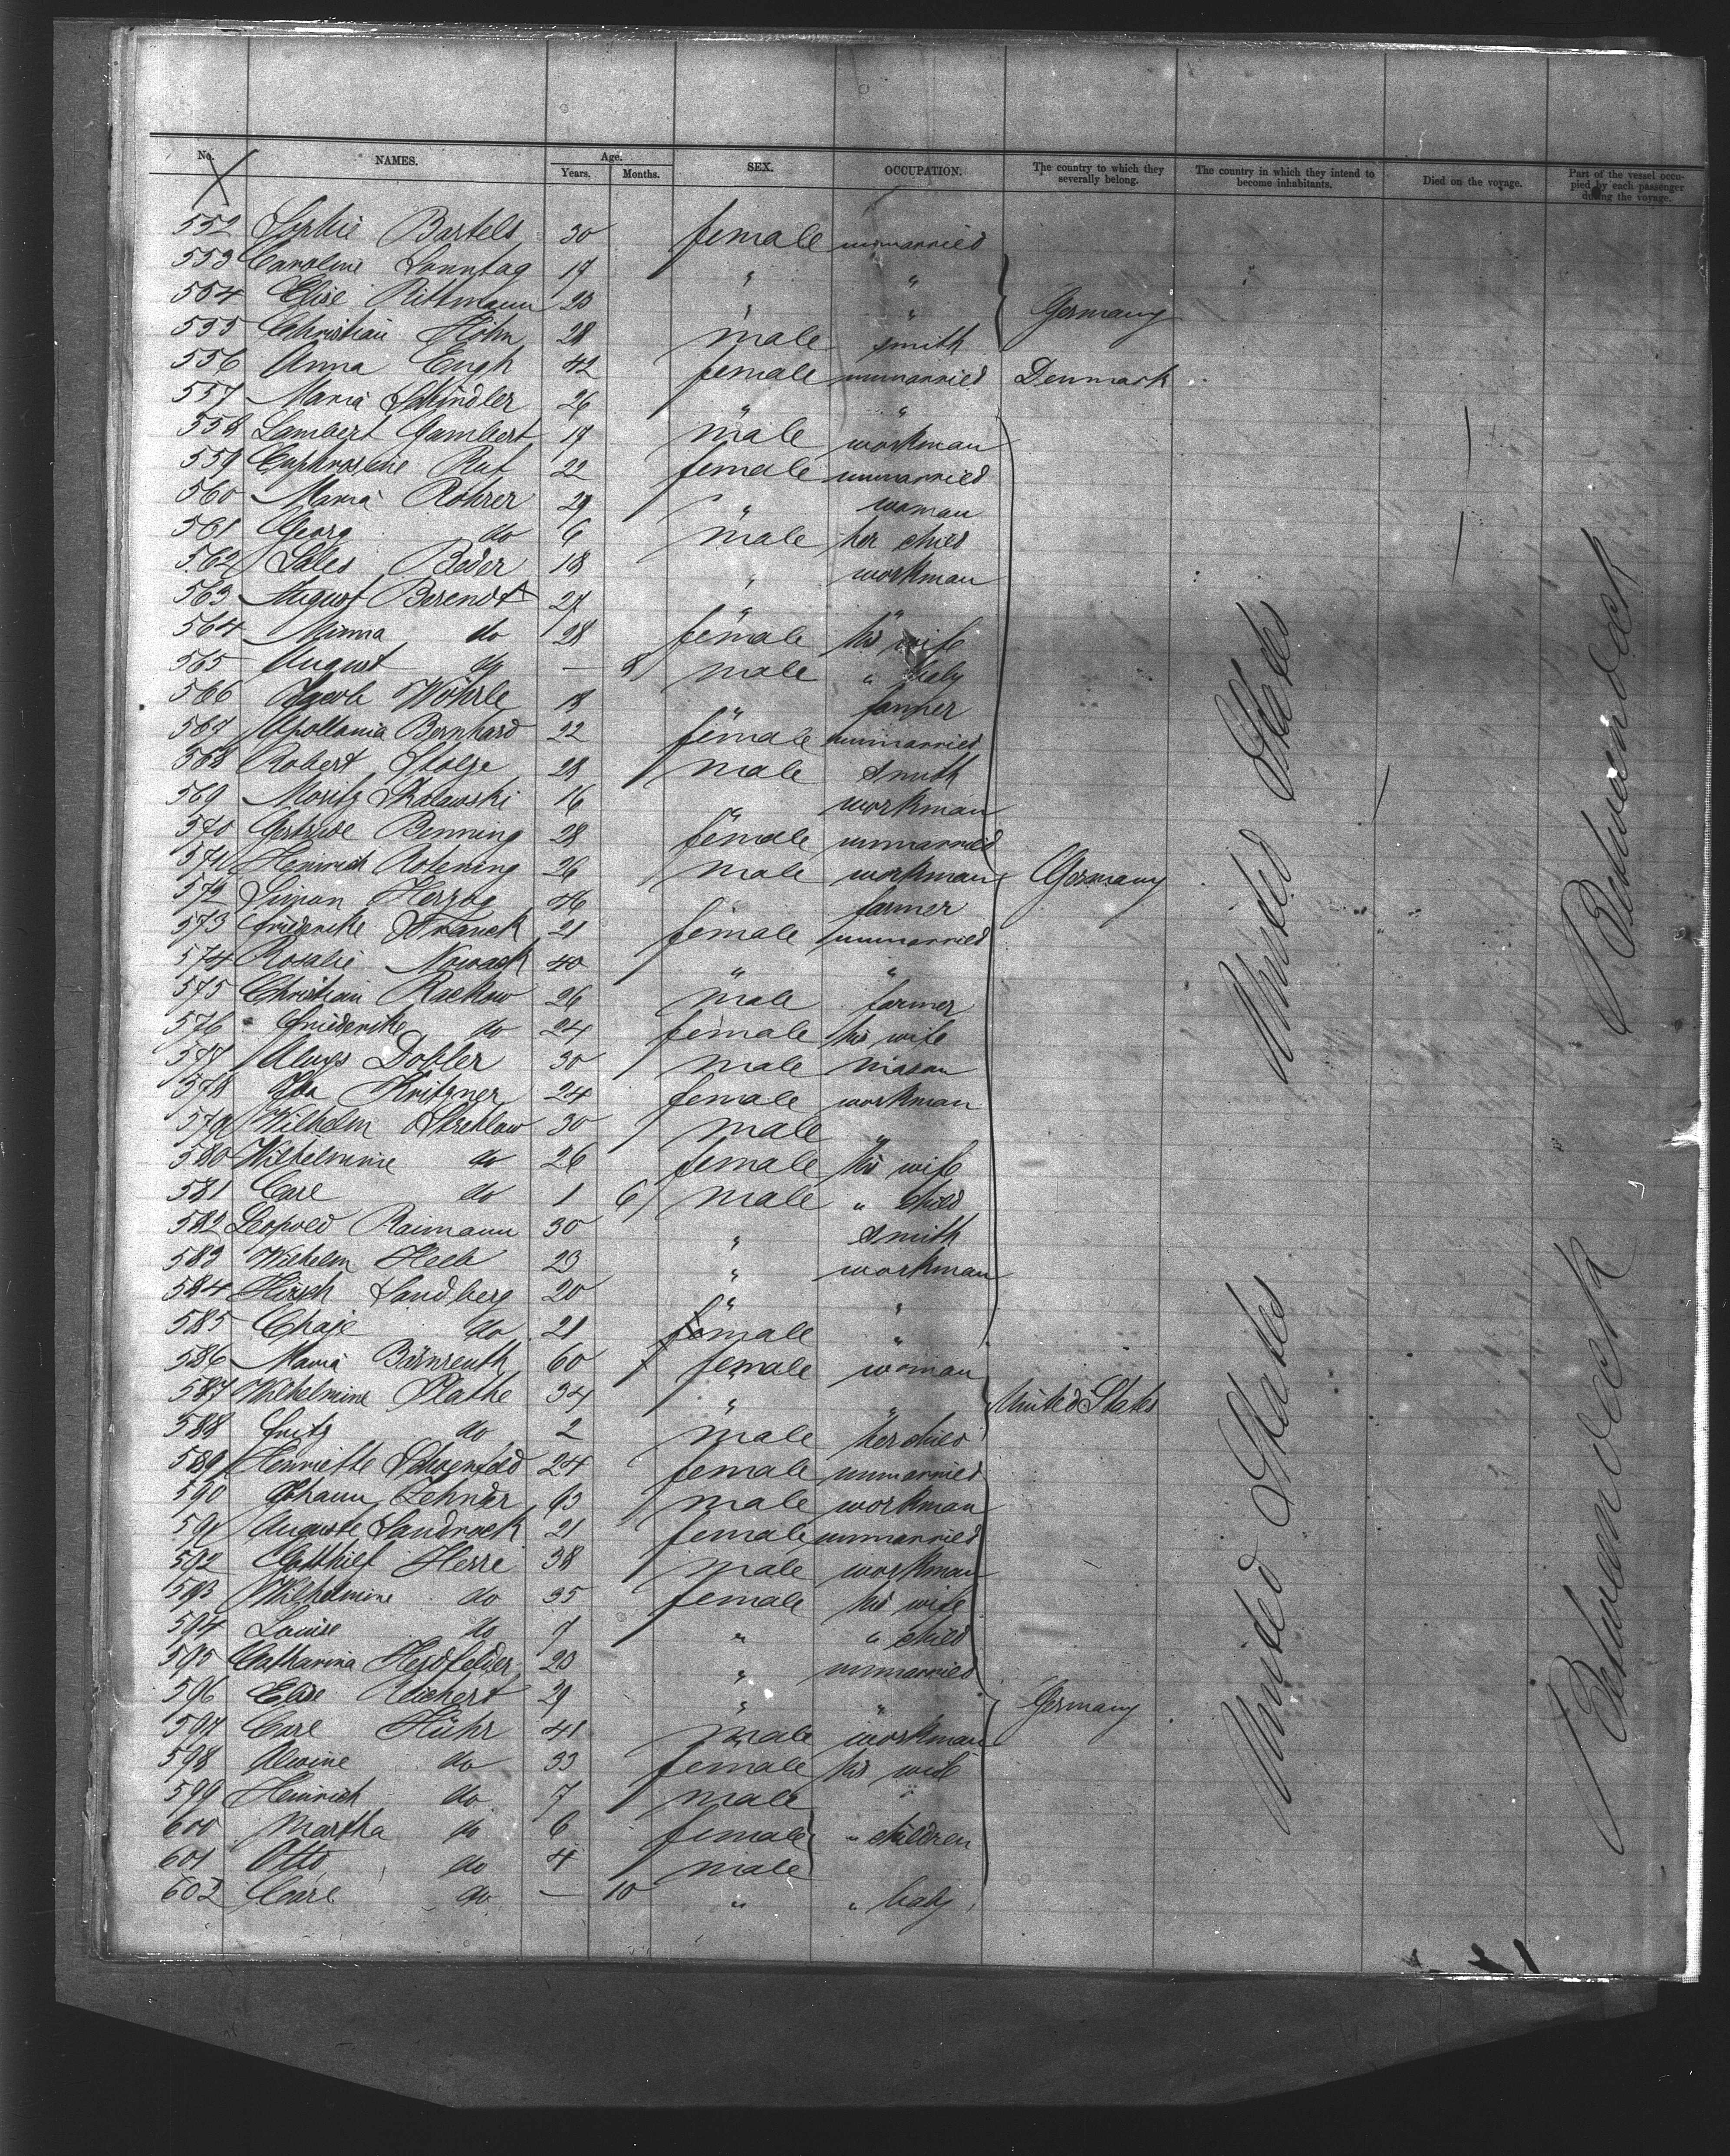 No. NAMES. Age. Years. Months. SEX. OCCUPATION. The country to which they severally belong. The country in which they intend to become inhabitants. Died on the voyage. Part of the vessel occupied by each passenger during the voyage.
552 Sophie Bartels 30 female unmarried
553 Caroline Sonntag 19 " "
554 Elise Rittmann 23 " " Germany
555 Christian Höhn 28 male smith
556 Anna Engh 42 female unmarried Denmark
557 Maria Schindler 26 " "
558 Lambert Gambert 19 male workman
559 Euphrosine Ruf 22 female unmarried
560 Maria Röhrer 29 " woman
561 Georg do 6 male her child
562 Sales Beder 18 " workman
563 August Berendt 27 " "
564 Minna do 28 female his wife
565 August do — 8 male " baby
566 Jacob Wöhrle 18 " farmer
567 Apollonia Bernhard 22 female unmarried
568 Robert Stolze 28 male smith
569 Moritz Skalawski 16 " workman
570 Gertrude Benning 28 female unmarried
571 Heinrich Rotening 26 male workman Germany
572 Simon Herzog 46 " farmer
573 Friederike Franck 21 female unmarried
574 Rosalie Nowack 40 " "
575 Christian Rackow 26 male farmer
576 Friederike do 24 female his wife
577 Aloys Dobler 30 male mason
578 Ida Kritzner 24 female workman
579 Wilhelm Strehlow 30 male "
580 Wilhelmine do 26 female his wife
581 Carl do 1 6 male " child
582 Leopold Raimann 30 " smith
583 Wilhelm Heeb 23 " workman
584 Hirsch Sandberg 20 " "
585 Chaje do 21 female "
586 Maria Bärnreuth 60 female woman
587 Wilhelmine Plathe 34 " " United States
588 Fritz do 2 male her child
589 Henriette Schoenfeld 24 female unmarried
590 Johann Zehnder 63 male workman
591 Auguste Sandrock 21 female unmarried
592 Gotthilf Herre 38 male workman
593 Wilhelmine do 35 female his wife
594 Louise do 7 " " child
595 Catharina Herdfelder 23 " unmarried
596 Elise Reichert 29 " " Germany
597 Carl Hühr 41 male workman
598 Alwine do 33 female his wife
599 Heinrich do 7 male
600 Martha do 6 female " children
601 Otto do 4 male
602 Carl do — 10 " " baby
United States
United States
Betweendeck
Betweendeck